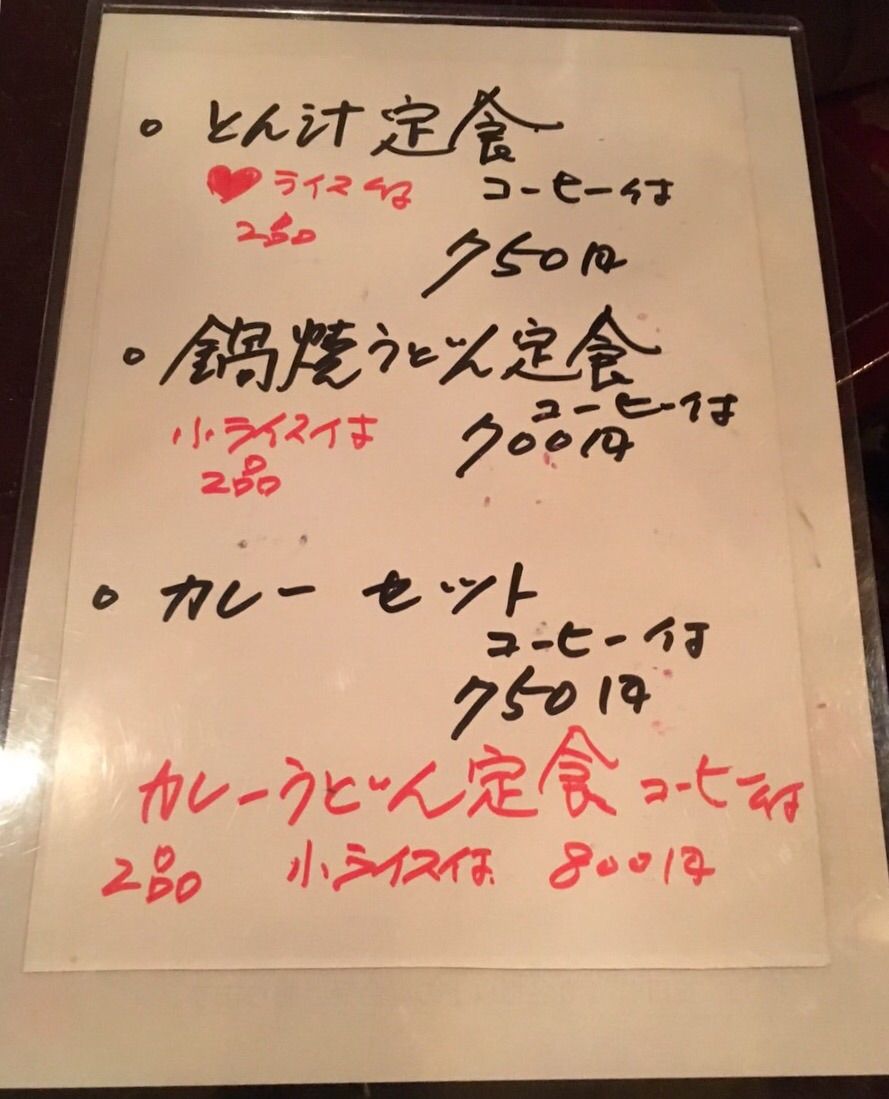 ○ とん汁定食
♥ ライス付 コーヒー付
2品
750円
○ 鍋焼うどん定食
コーヒー付
小ライス付 700円
2品
○ カレー セット
コーヒー付
750円
カレーうどん定食 コーヒー付
2品 小ライス付 800円